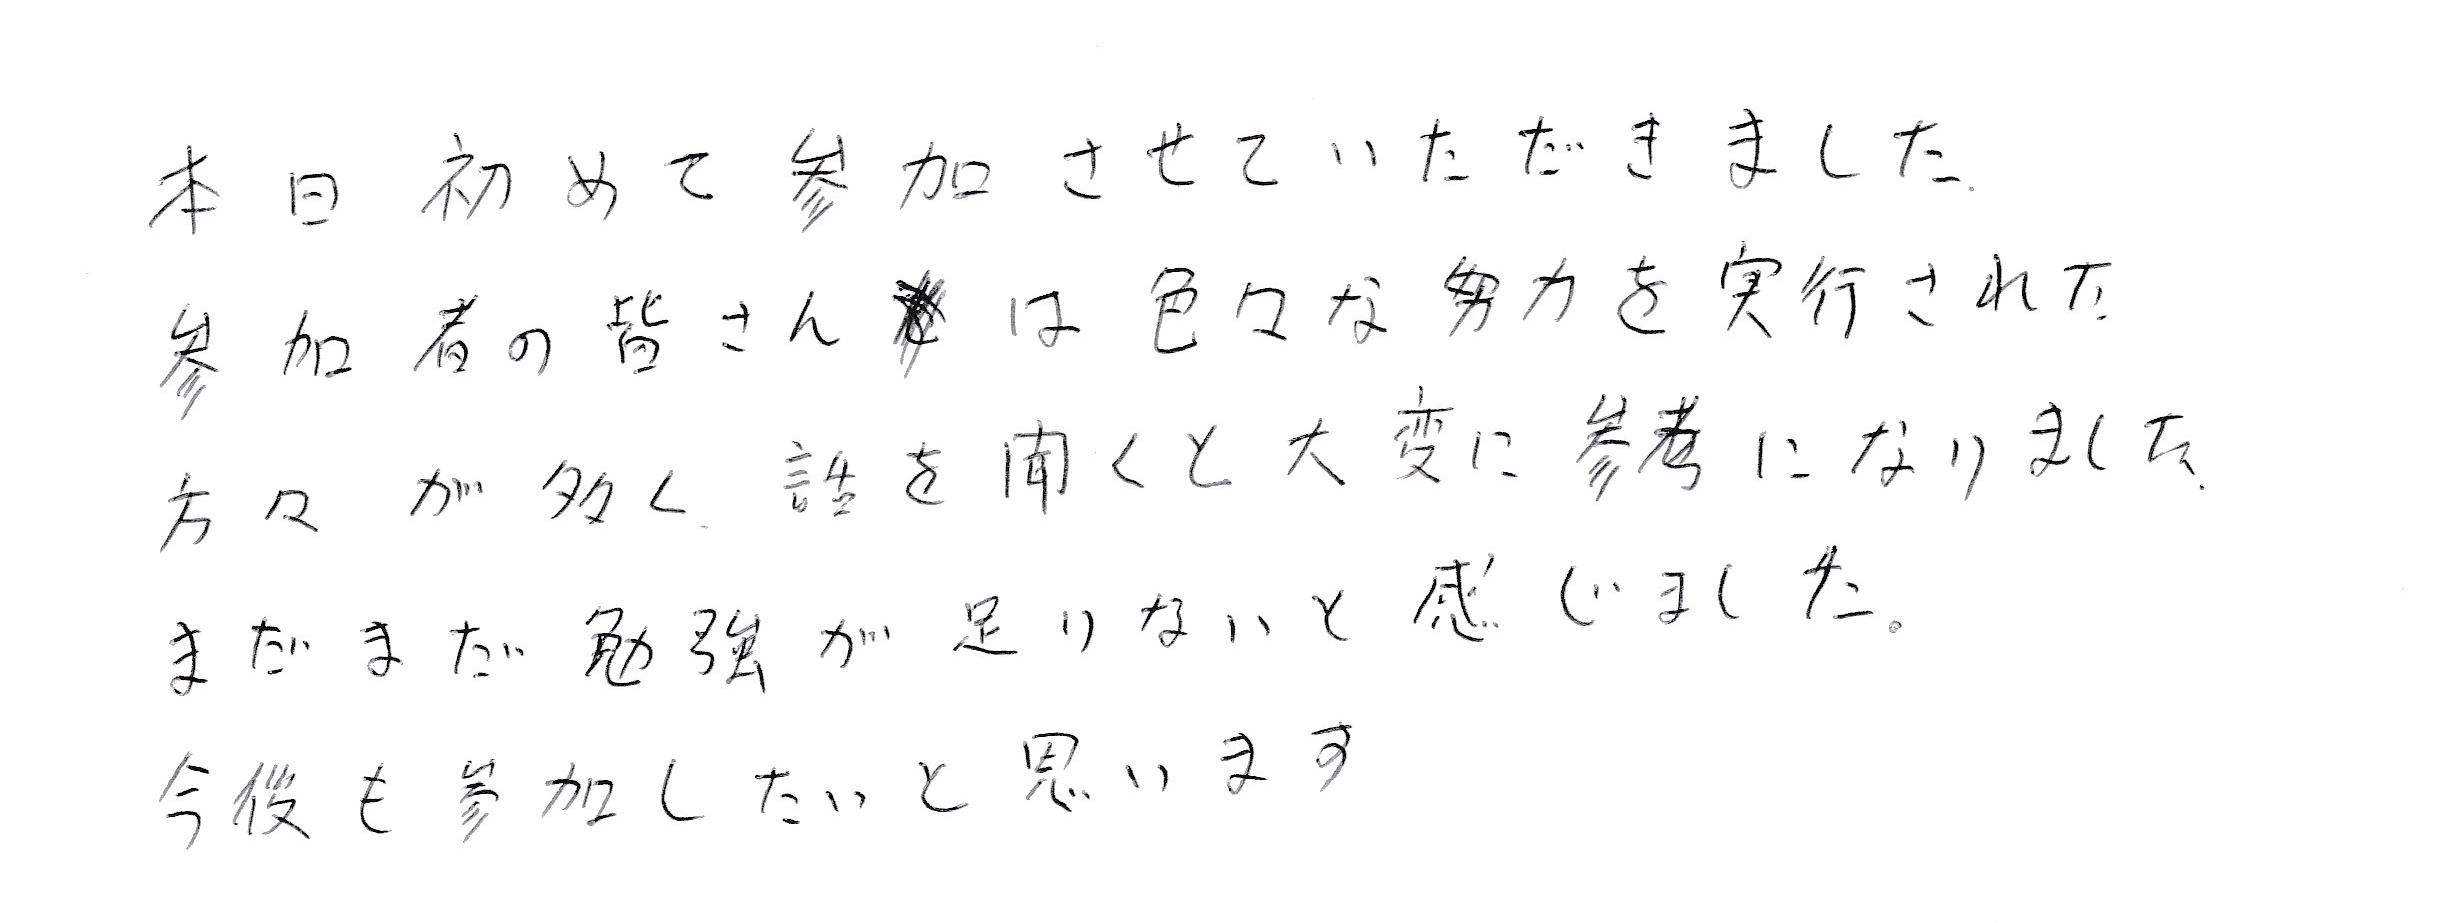 本日初めて参加させていただきました.
参加者の皆さんは色々な努力を実行された
方々が多く.話を聞くと大変に参考になりました.
まだまだ勉強が足りないと感じました。
今後も参加したいと思います